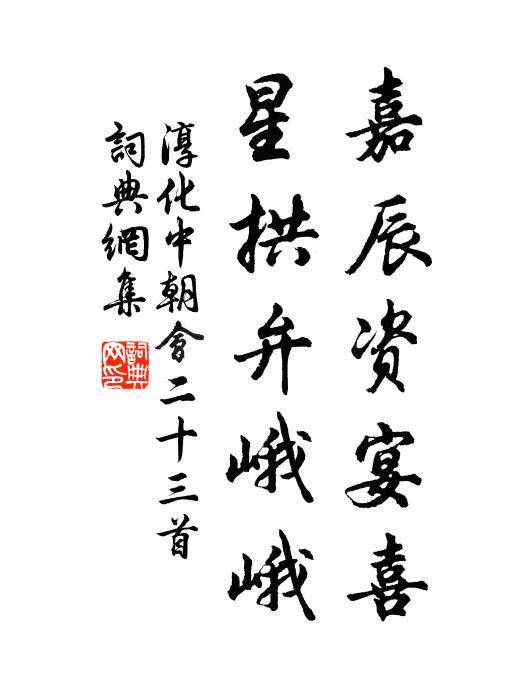 嘉辰资宴喜
星拱弁峨峨
淳化中朝會二十三首
詞典網集
詞典網印